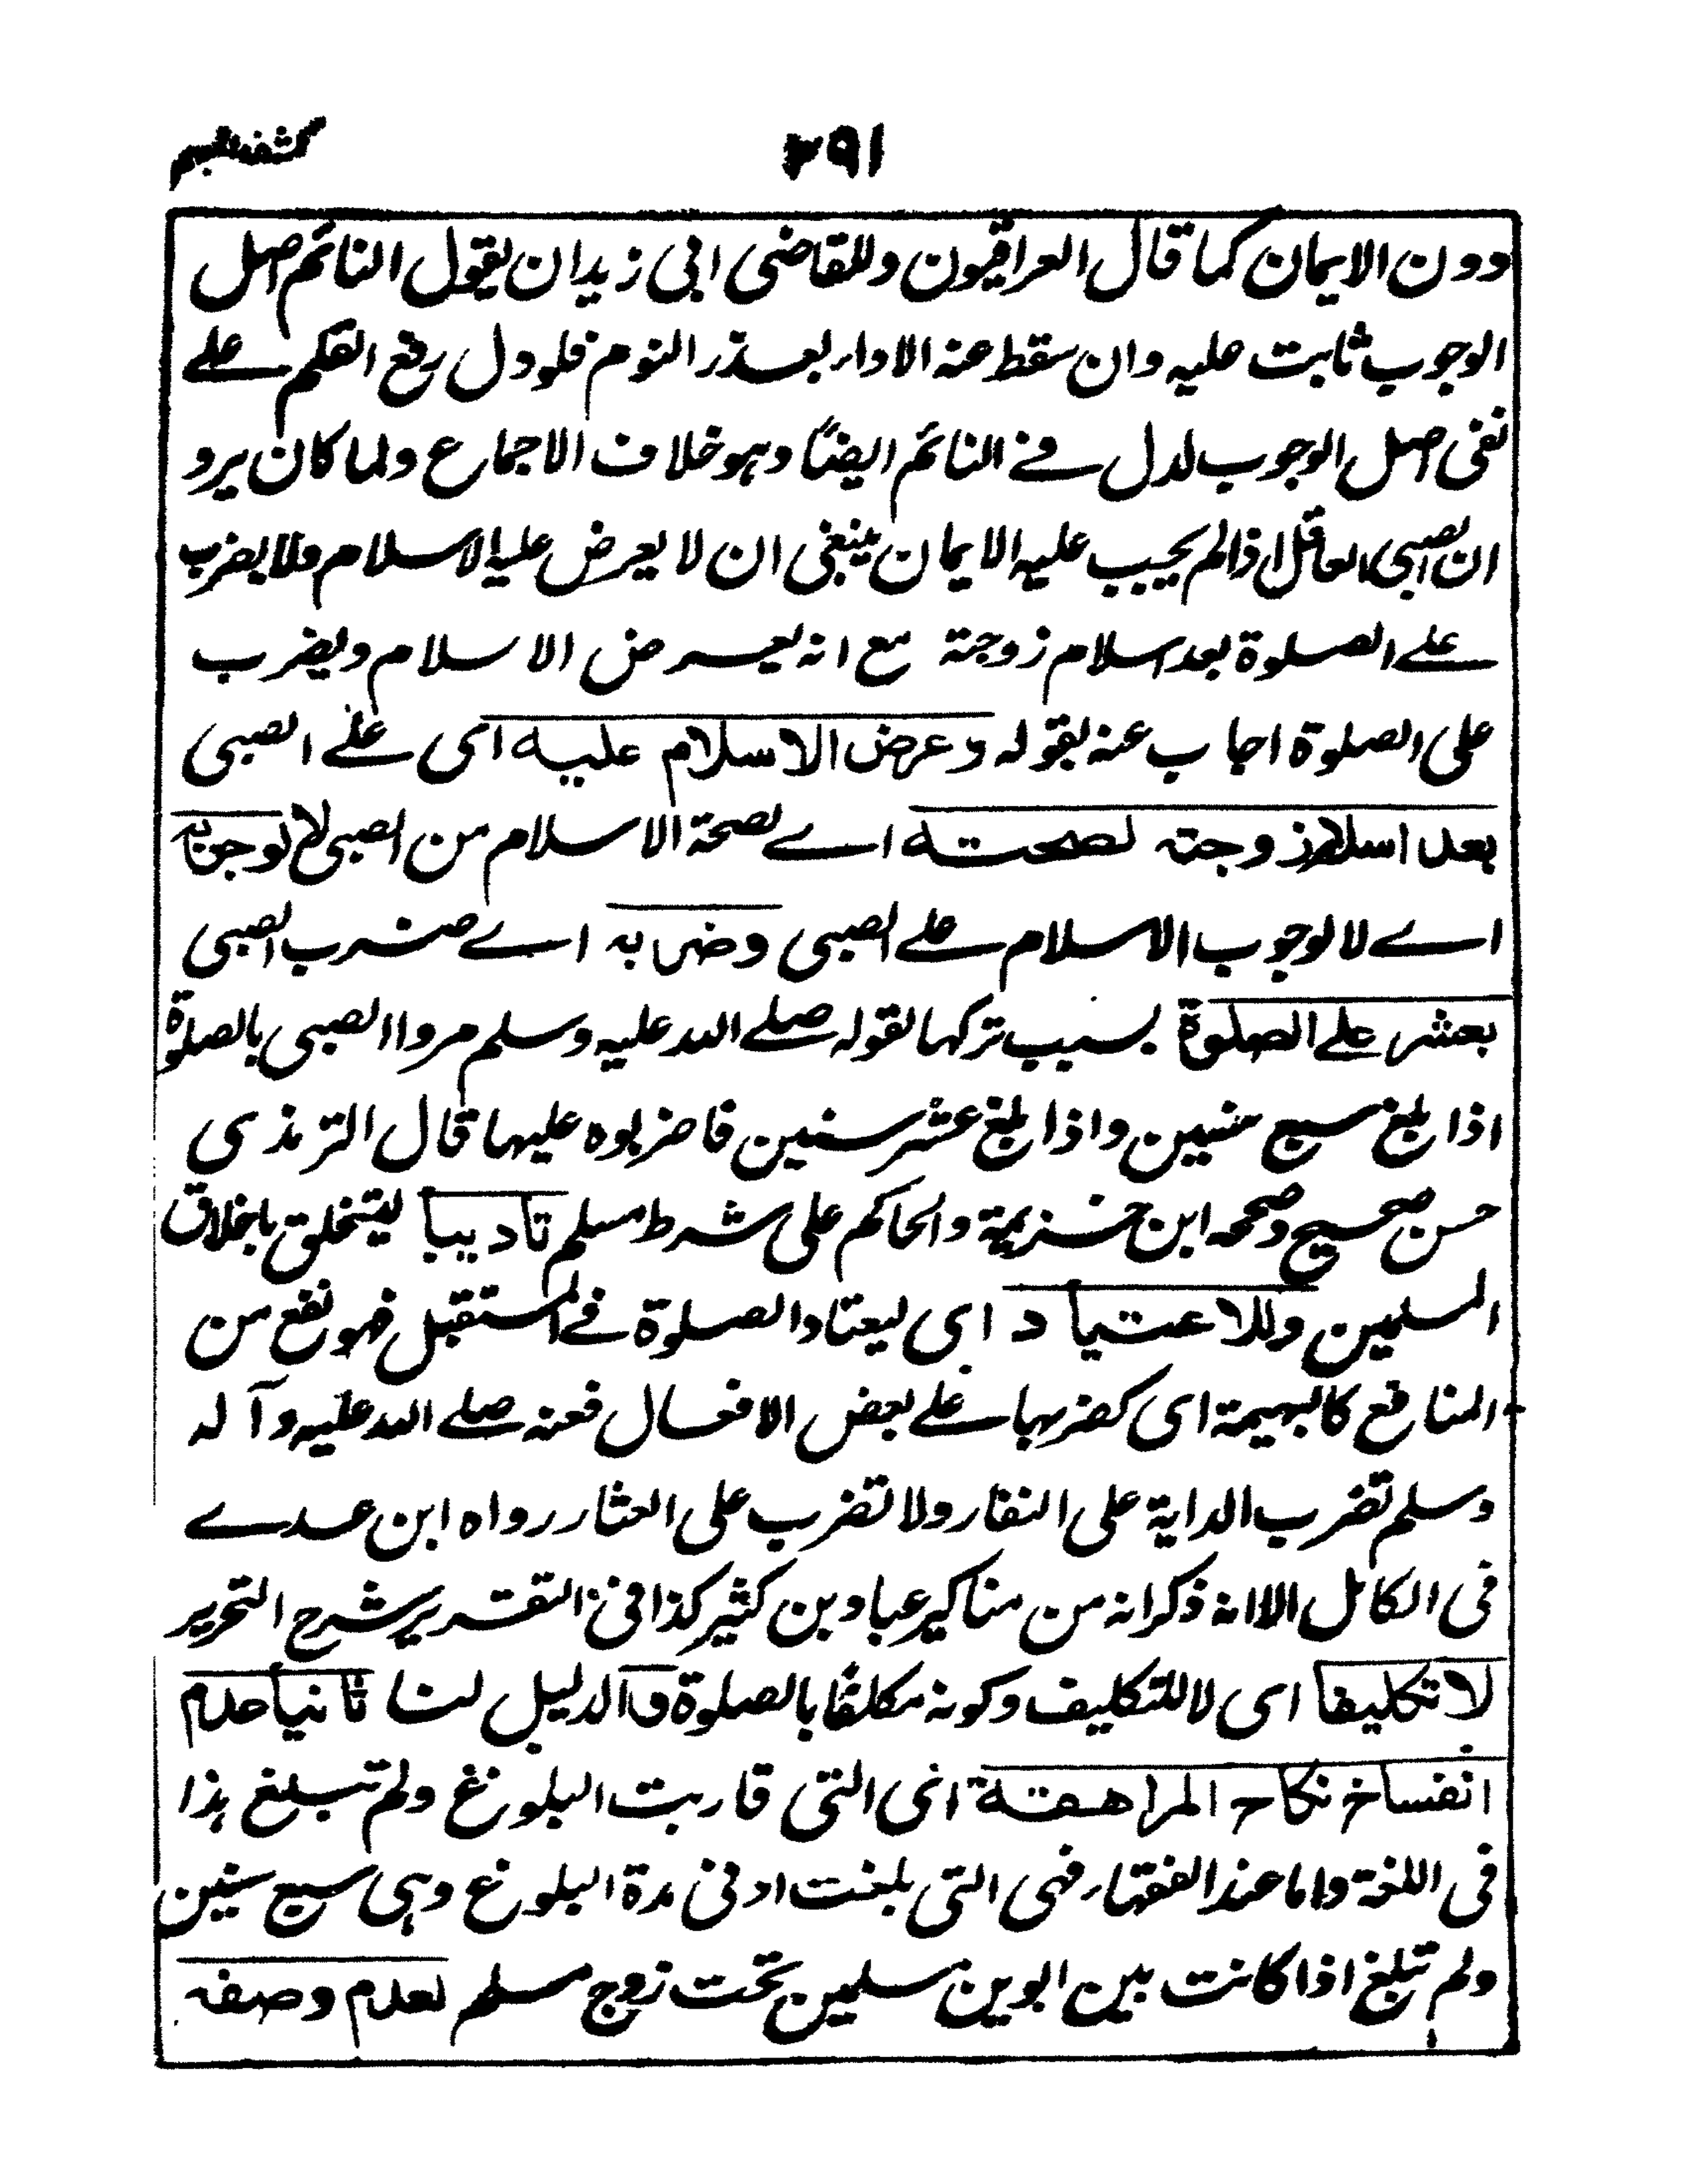 كشف المبهم ٢٩١
دون الايمان كما قال العراقيون وللقاضى ابى زيد ان يقول النائم اصل
الوجوب ثابت عليه وان سقط عنه الاداء بعذر النوم فلو دل رفع القلم على
نفى اصل الوجوب لدل فى النائم ايضًا وهو خلاف الاجماع ولما كان يرد
ان الصبى العاقل اذا لم يجب عليه الايمان ينبغى ان لا يعرض عليه الاسلام ولا يضرب
على الصلوة بعد اسلام زوجته مع انه يعرض الاسلام ويضرب
على الصلوة اجاب عنه بقوله وعرض الاسلام عليه اى على الصبى
بعد اسلام زوجته لصحته اى لصحة الاسلام من الصبى لا لوجوبه
اى لا لوجوب الاسلام على الصبى وضربه اى ضرب الصبى
بعشر على الصلوة بسبب تركها لقوله صلى الله عليه وسلم مروا الصبى بالصلوة
اذا بلغ سبع سنين واذا بلغ عشر سنين فاضربوه عليها قال الترمذى
حسن صحيح وصححه ابن خزيمة والحاكم على شرط مسلم تاديبا ليتخلق باخلاق
المسلمين وللاعتياد اى ليعتاد الصلوة فى المستقبل فهو نفع من
المنافع كالبهيمة اى كضربها على بعض الافعال فعنه صلى الله عليه وآله
وسلم تضرب الداية على النفار ولا تضرب على العثار رواه ابن عدى
فى الكامل الا انه ذكر انه من مناكير عباد بن كثير كذا فى التقرير شرح التحرير
لا تكليفا اى لا للتكليف وكونه مكلفًا بالصلوة و الدليل لنا ثانيا عدم
انفساخ نكاح المراهقة اى التى قاربت البلوغ ولم تبلغ هذا
فى اللغة واما عند الفقهاء فهى التى بلغت ادنى مدة البلوغ وهى سبع سنين
ولم تبلغ اذا كانت بين ابوين مسلمين تحت زوج مسلم لعدم وصفه